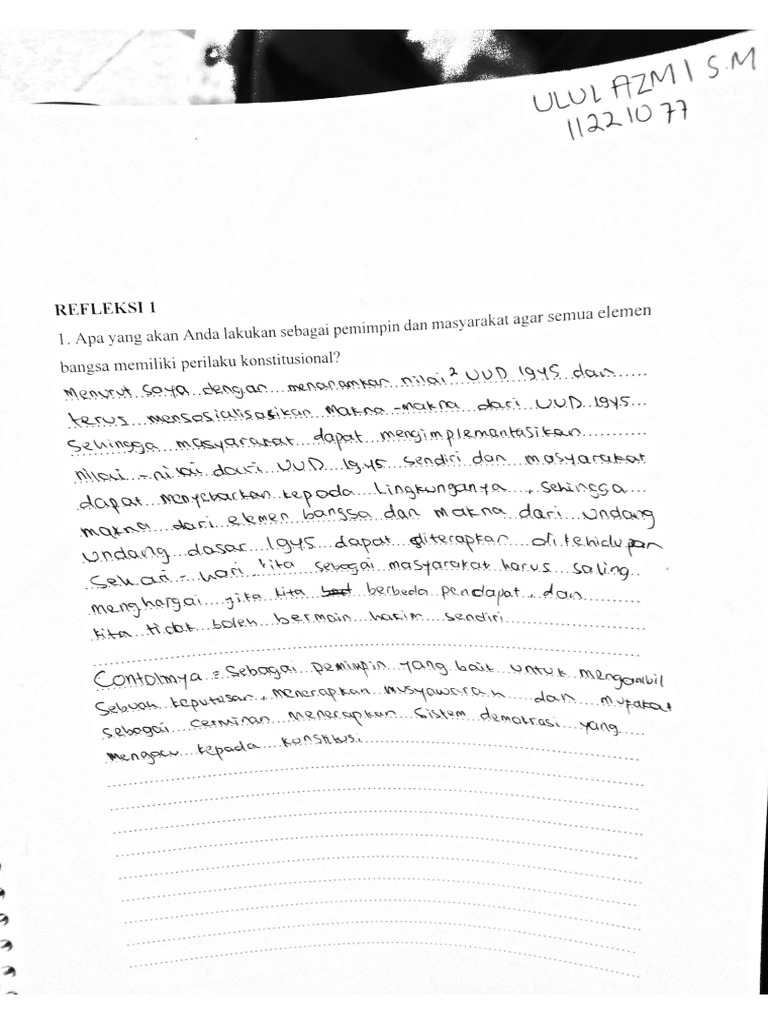 ULUL AZMI S.M
11221077
REFLEKSI 1
1. Apa yang akan Anda lakukan sebagai pemimpin dan masyarakat agar semua elemen
bangsa memiliki perilaku konstitusional?
Menurut saya dengan menanamkan nilai² UUD 1945 dan
terus mensosialisasikan makna-makna dari UUD 1945
Sehingga masyarakat dapat mengimplemantasikan
nilai-nilai dari UUD 1945 sendiri dan masyarakat
dapat menyebarkan kepada Lingkunganya, Sehingga
makna dari elemen bangsa dan makna dari Undang
Undang dasar 1945 dapat diterapkan di kehidupan
Sehari-hari kita sebagai masyarakat harus saling
menghargai jika kita berbeda pendapat, dan
kita tidak boleh bermain hakim sendiri
Contohnya = Sebagai pemimpin yang baik untuk mengambil
Sebuah keputusan, menerapkan musyawarah dan mufakat
sebagai cerminan menerapkan sistem demokrasi yang
mengacu kepada konstitusi.